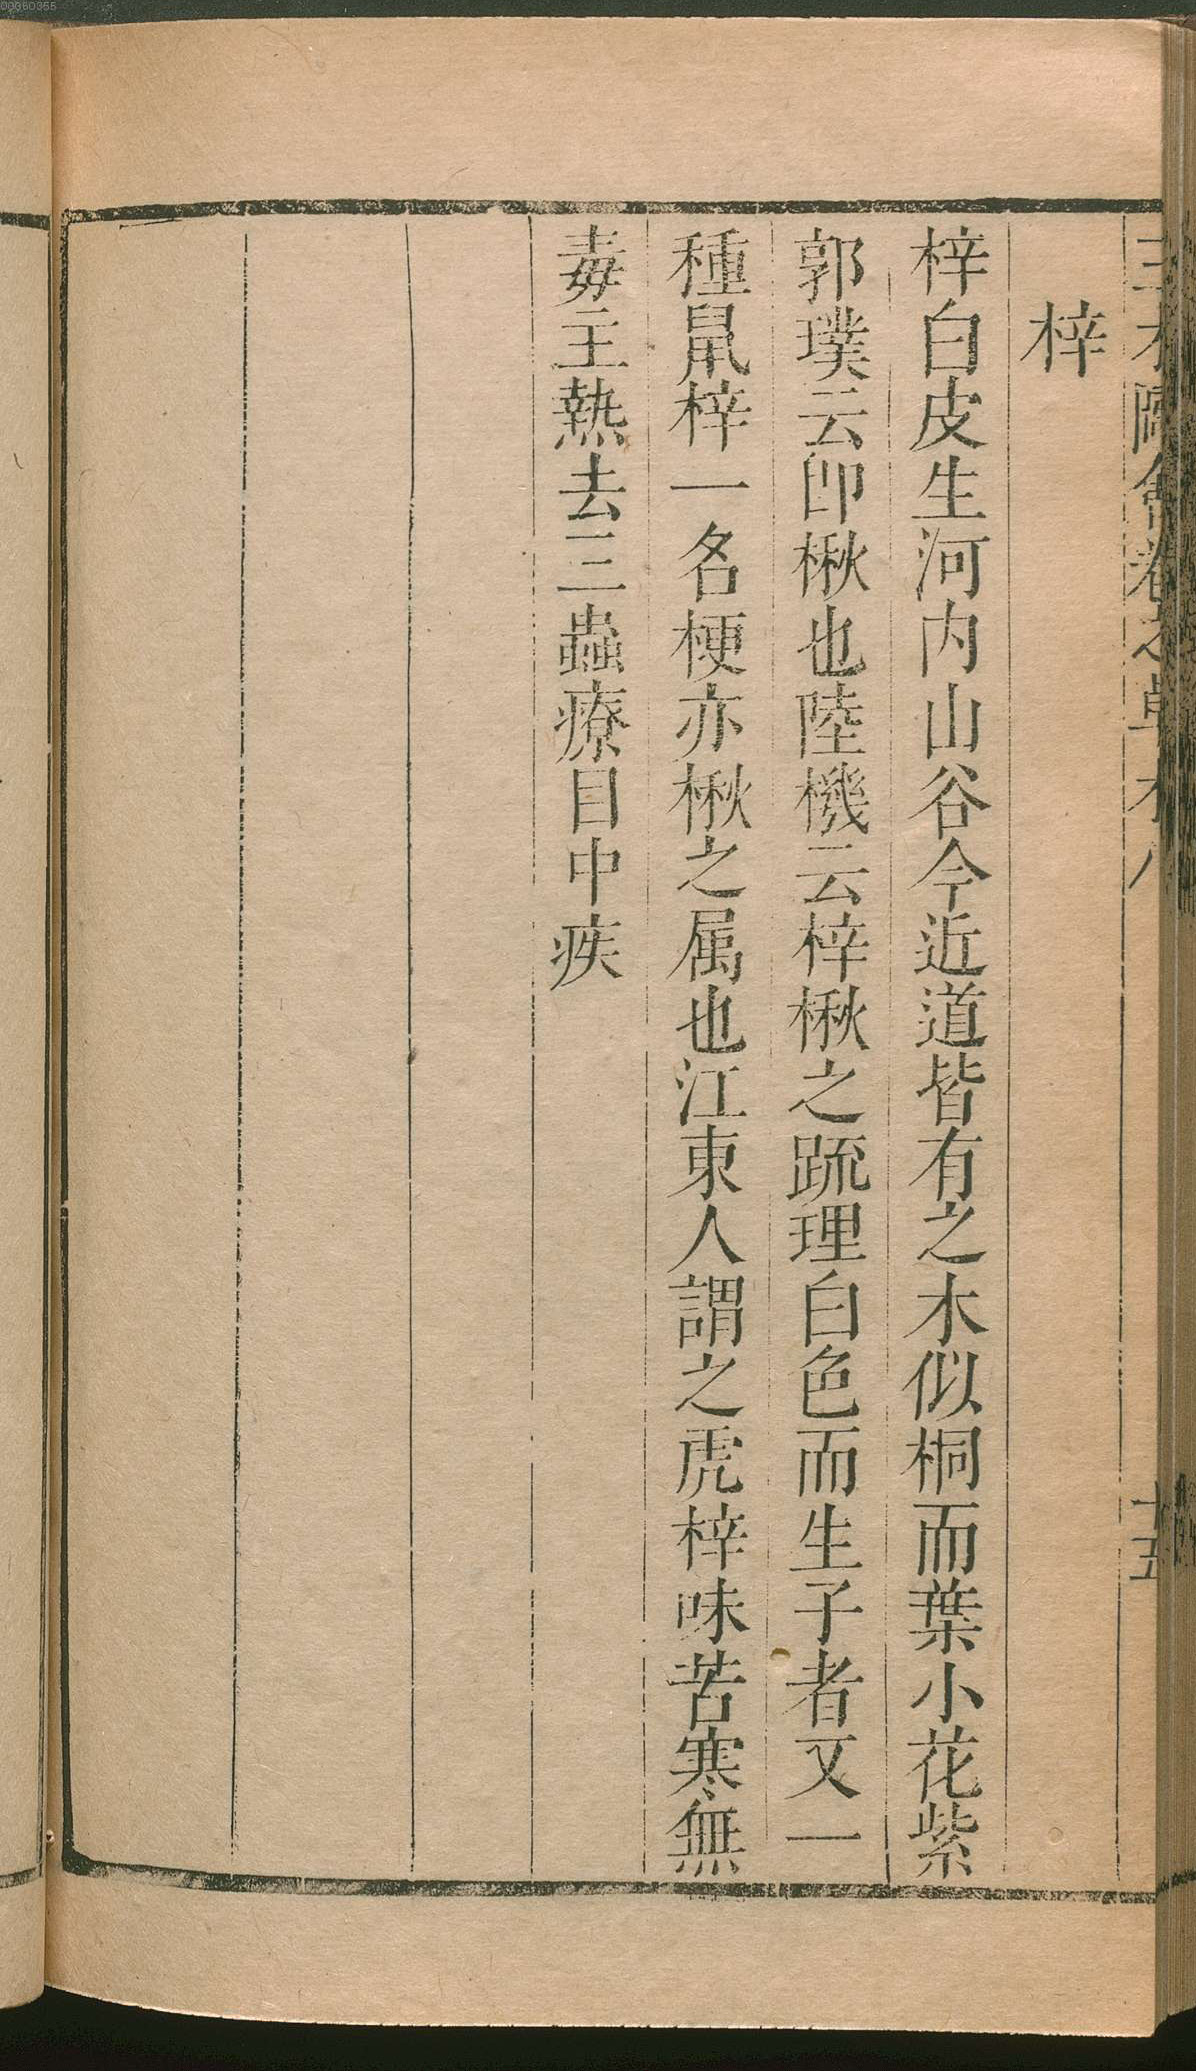 梓
梓白皮生河内山谷今近道皆有之木似桐而葉小花紫
郭璞云即楸也陸機云梓楸之䟽理白色而生子者又一
種鼠梓一名楰亦楸之属也江東人謂之虎梓味苦寒無
毒主熱去三蟲療目中疾